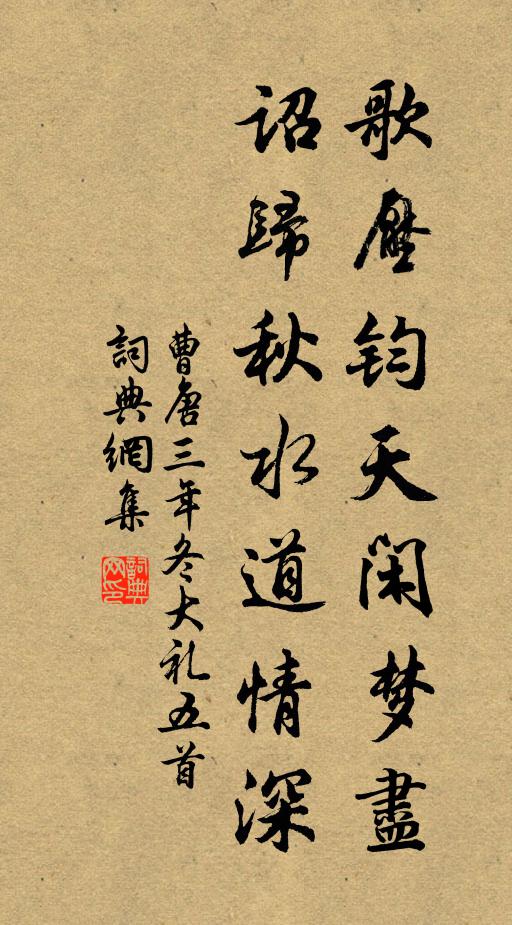 歌壓钧天闲梦盡
詔歸秋水道情深
曹唐三年冬大礼五首
詞典網集
詞典網印